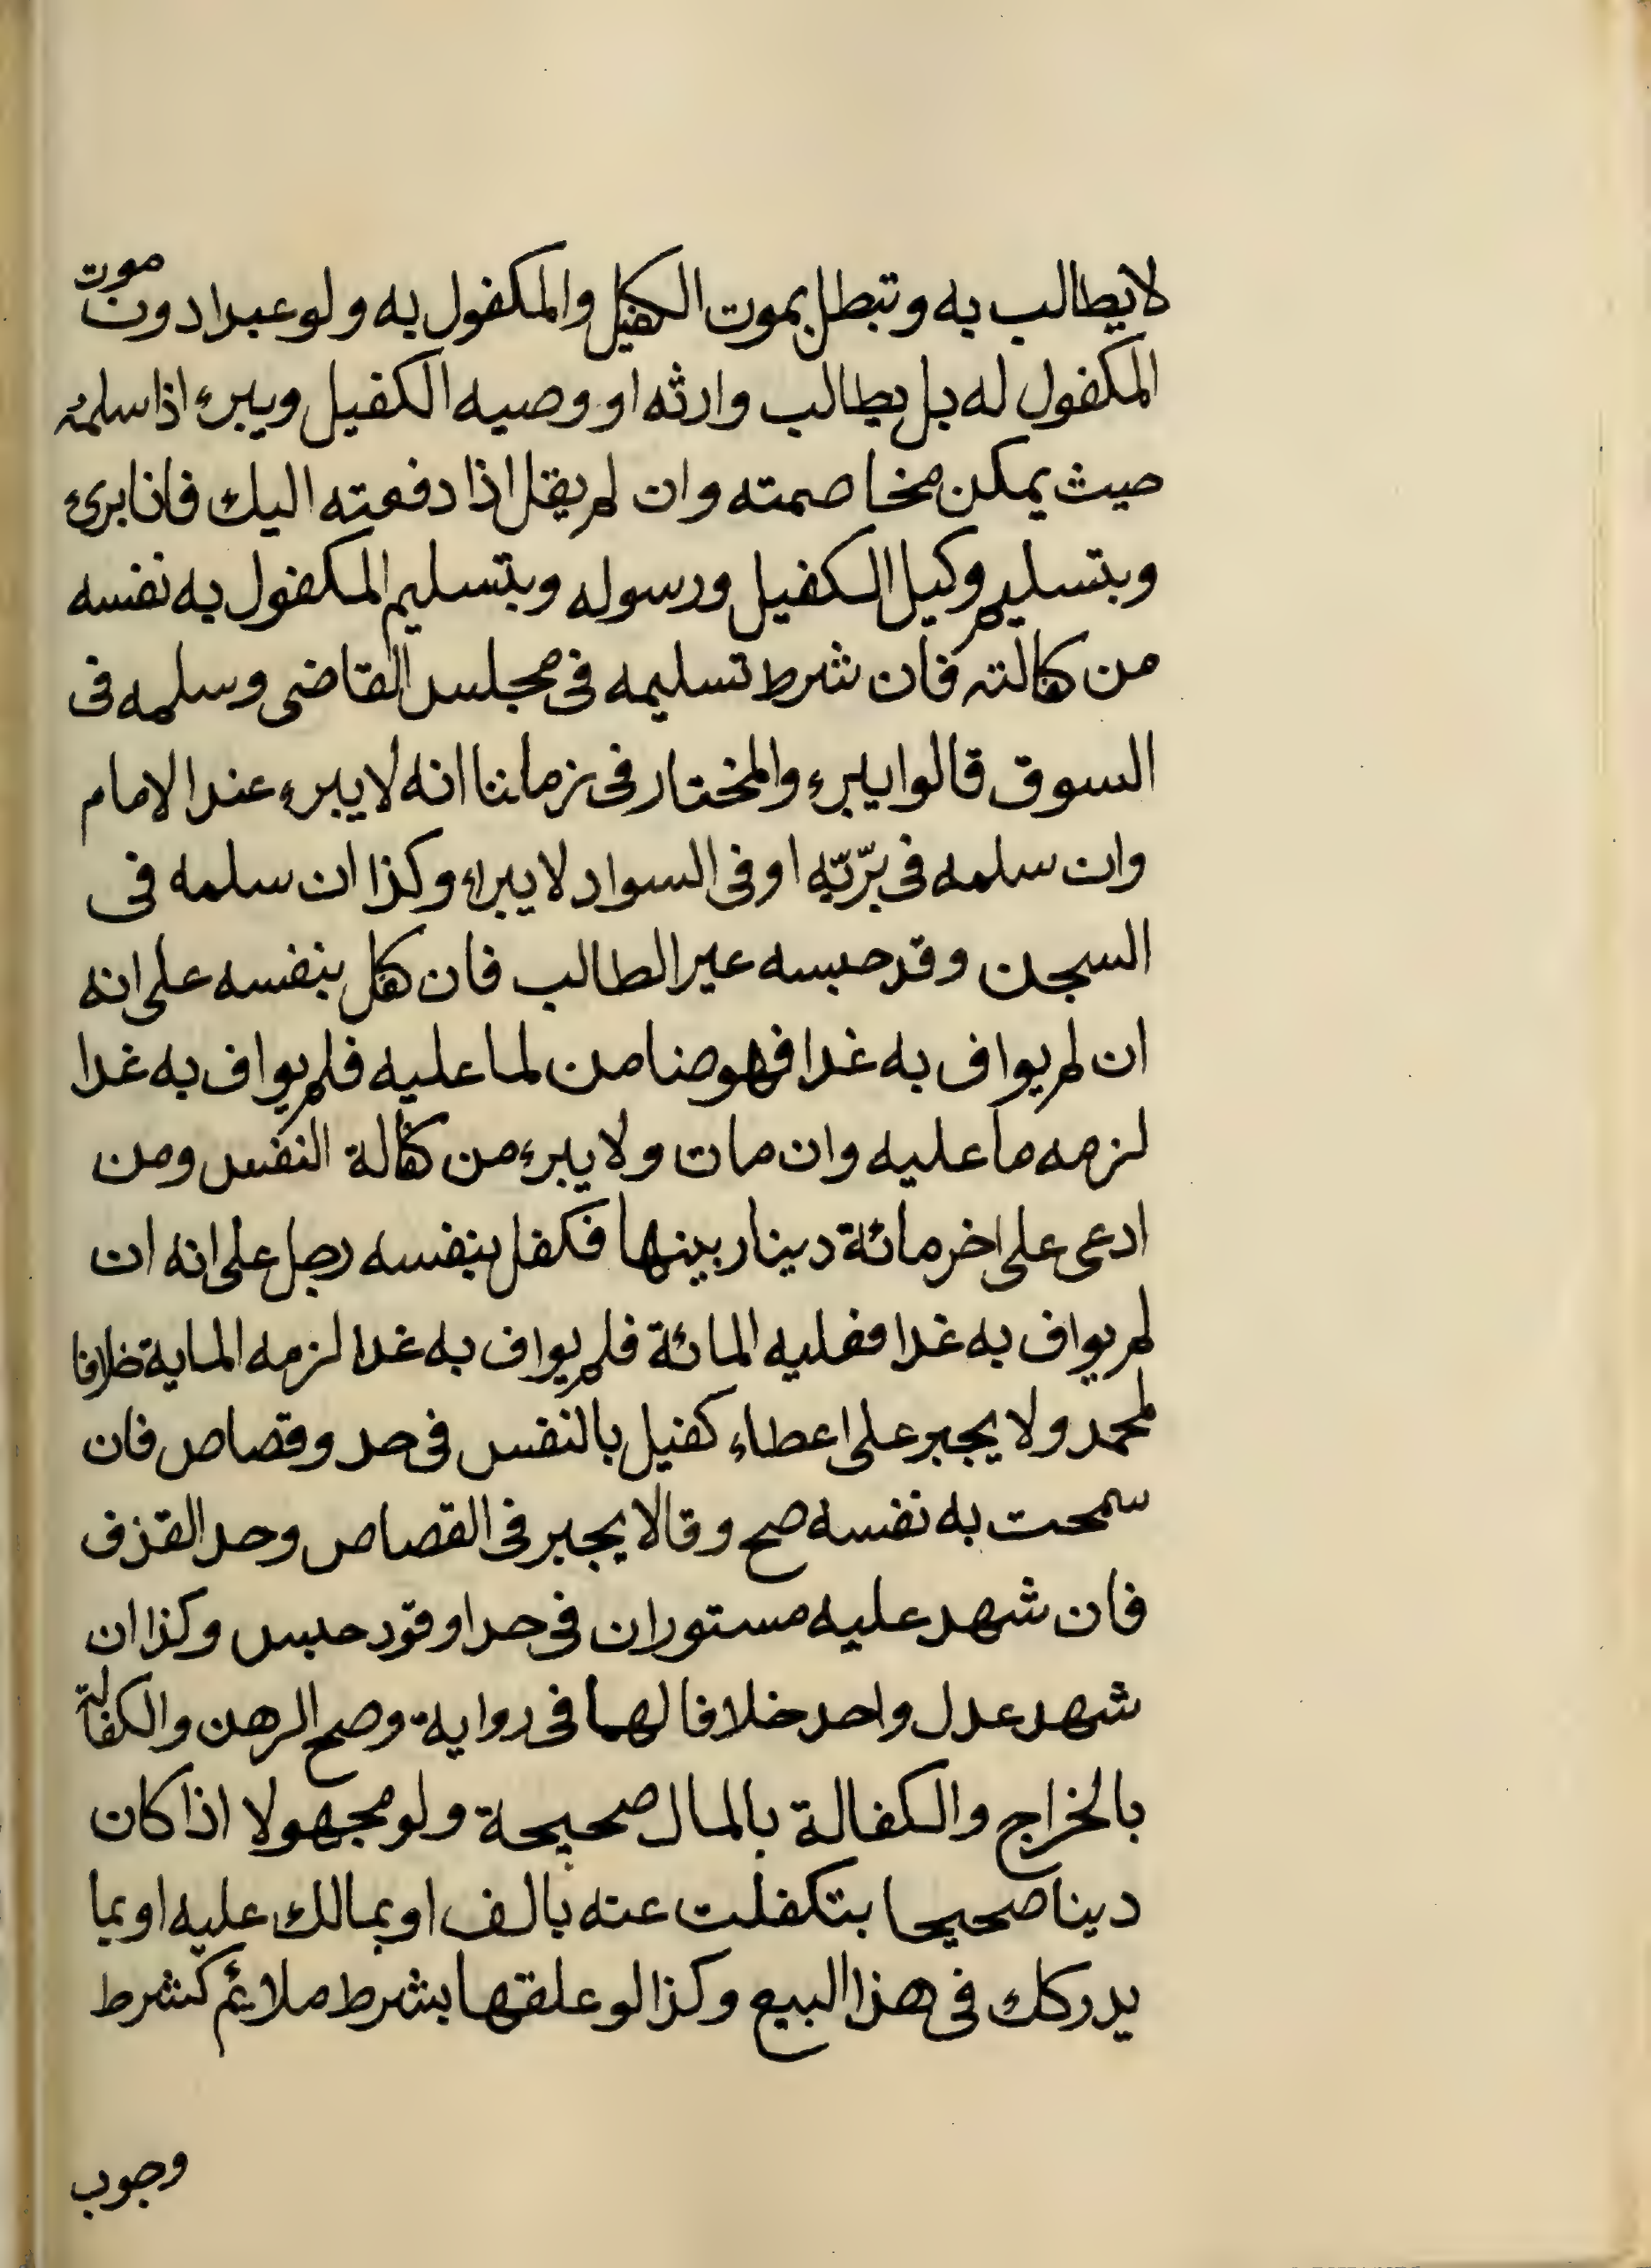 لا يطالب به وتبطل بموت الكفيل والمكفول به ولو عبدا دون موت
المكفول له بل يطالب وارثه او وصيه الكفيل ويبرء اذا سلمه
حيث يمكن مخاصمته وان لم يقل اذا دفعته اليك فانا برئ
وبتسليم وكيل الكفيل ورسوله وبتسليم المكفول به نفسه
من كفالته فان شرط تسليمه فى مجلس القاضى وسلمه فى
السوق قالوا يبرء والمختار فى زماننا انه لا يبرء عند الامام
وان سلمه فى برّيّه او فى السواد لا يبراء وكذا ان سلمه فى
السجن وقد حبسه غير الطالب فان كفل بنفسه على انه
ان لم يواف به غدا فهو ضامن لما عليه فلم يواف به غدا
لزمه ما عليه وان مات ولا يبرء من كفالة النفس ومن
ادعى على اخر مائة دينار بينها فكفل بنفسه رجل على انه ان
لم يواف به غدا فعليه المائة فلم يواف به غدا لزمه الماية خلافا
لمحمد ولا يجبر على اعطاء كفيل بالنفس فى حد وقصاص فان
سمحت به نفسه صح وقالا يجبر فى القصاص وحد القذف
فان شهد عليه مستوران فى حد او قود حبس وكذا ان
شهد عدل واحد خلافا لهما فى رواية وصح الرهن والكفالة
بالخراج والكفالة بالمال صحيحة ولو مجهولا اذا كان
دينا صحيحا بتكفلت عنه بالف او بمالك عليه او بما
يدركك فى هذا البيع وكذا لو علقها بشرط ملائم كشرط
وجوب